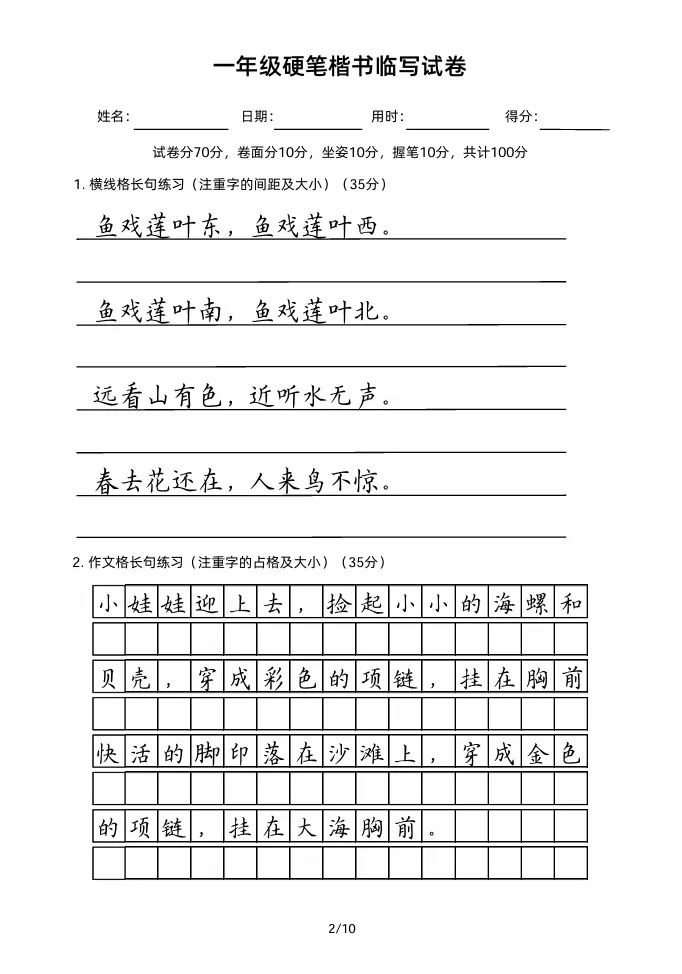 一年级硬笔楷书临写试卷
姓名: 日期: 用时: 得分:
试卷分70分，卷面分10分，坐姿10分，握笔10分，共计100分
1. 横线格长句练习（注重字的间距及大小）（35分）
鱼戏莲叶东，鱼戏莲叶西。
鱼戏莲叶南，鱼戏莲叶北。
远看山有色，近听水无声。
春去花还在，人来鸟不惊。
2. 作文格长句练习（注重字的占格及大小）（35分）
小娃娃迎上去，捡起小小的海螺和
贝壳，穿成彩色的项链，挂在胸前
快活的脚印落在沙滩上，穿成金色
的项链，挂在大海胸前。
2/10